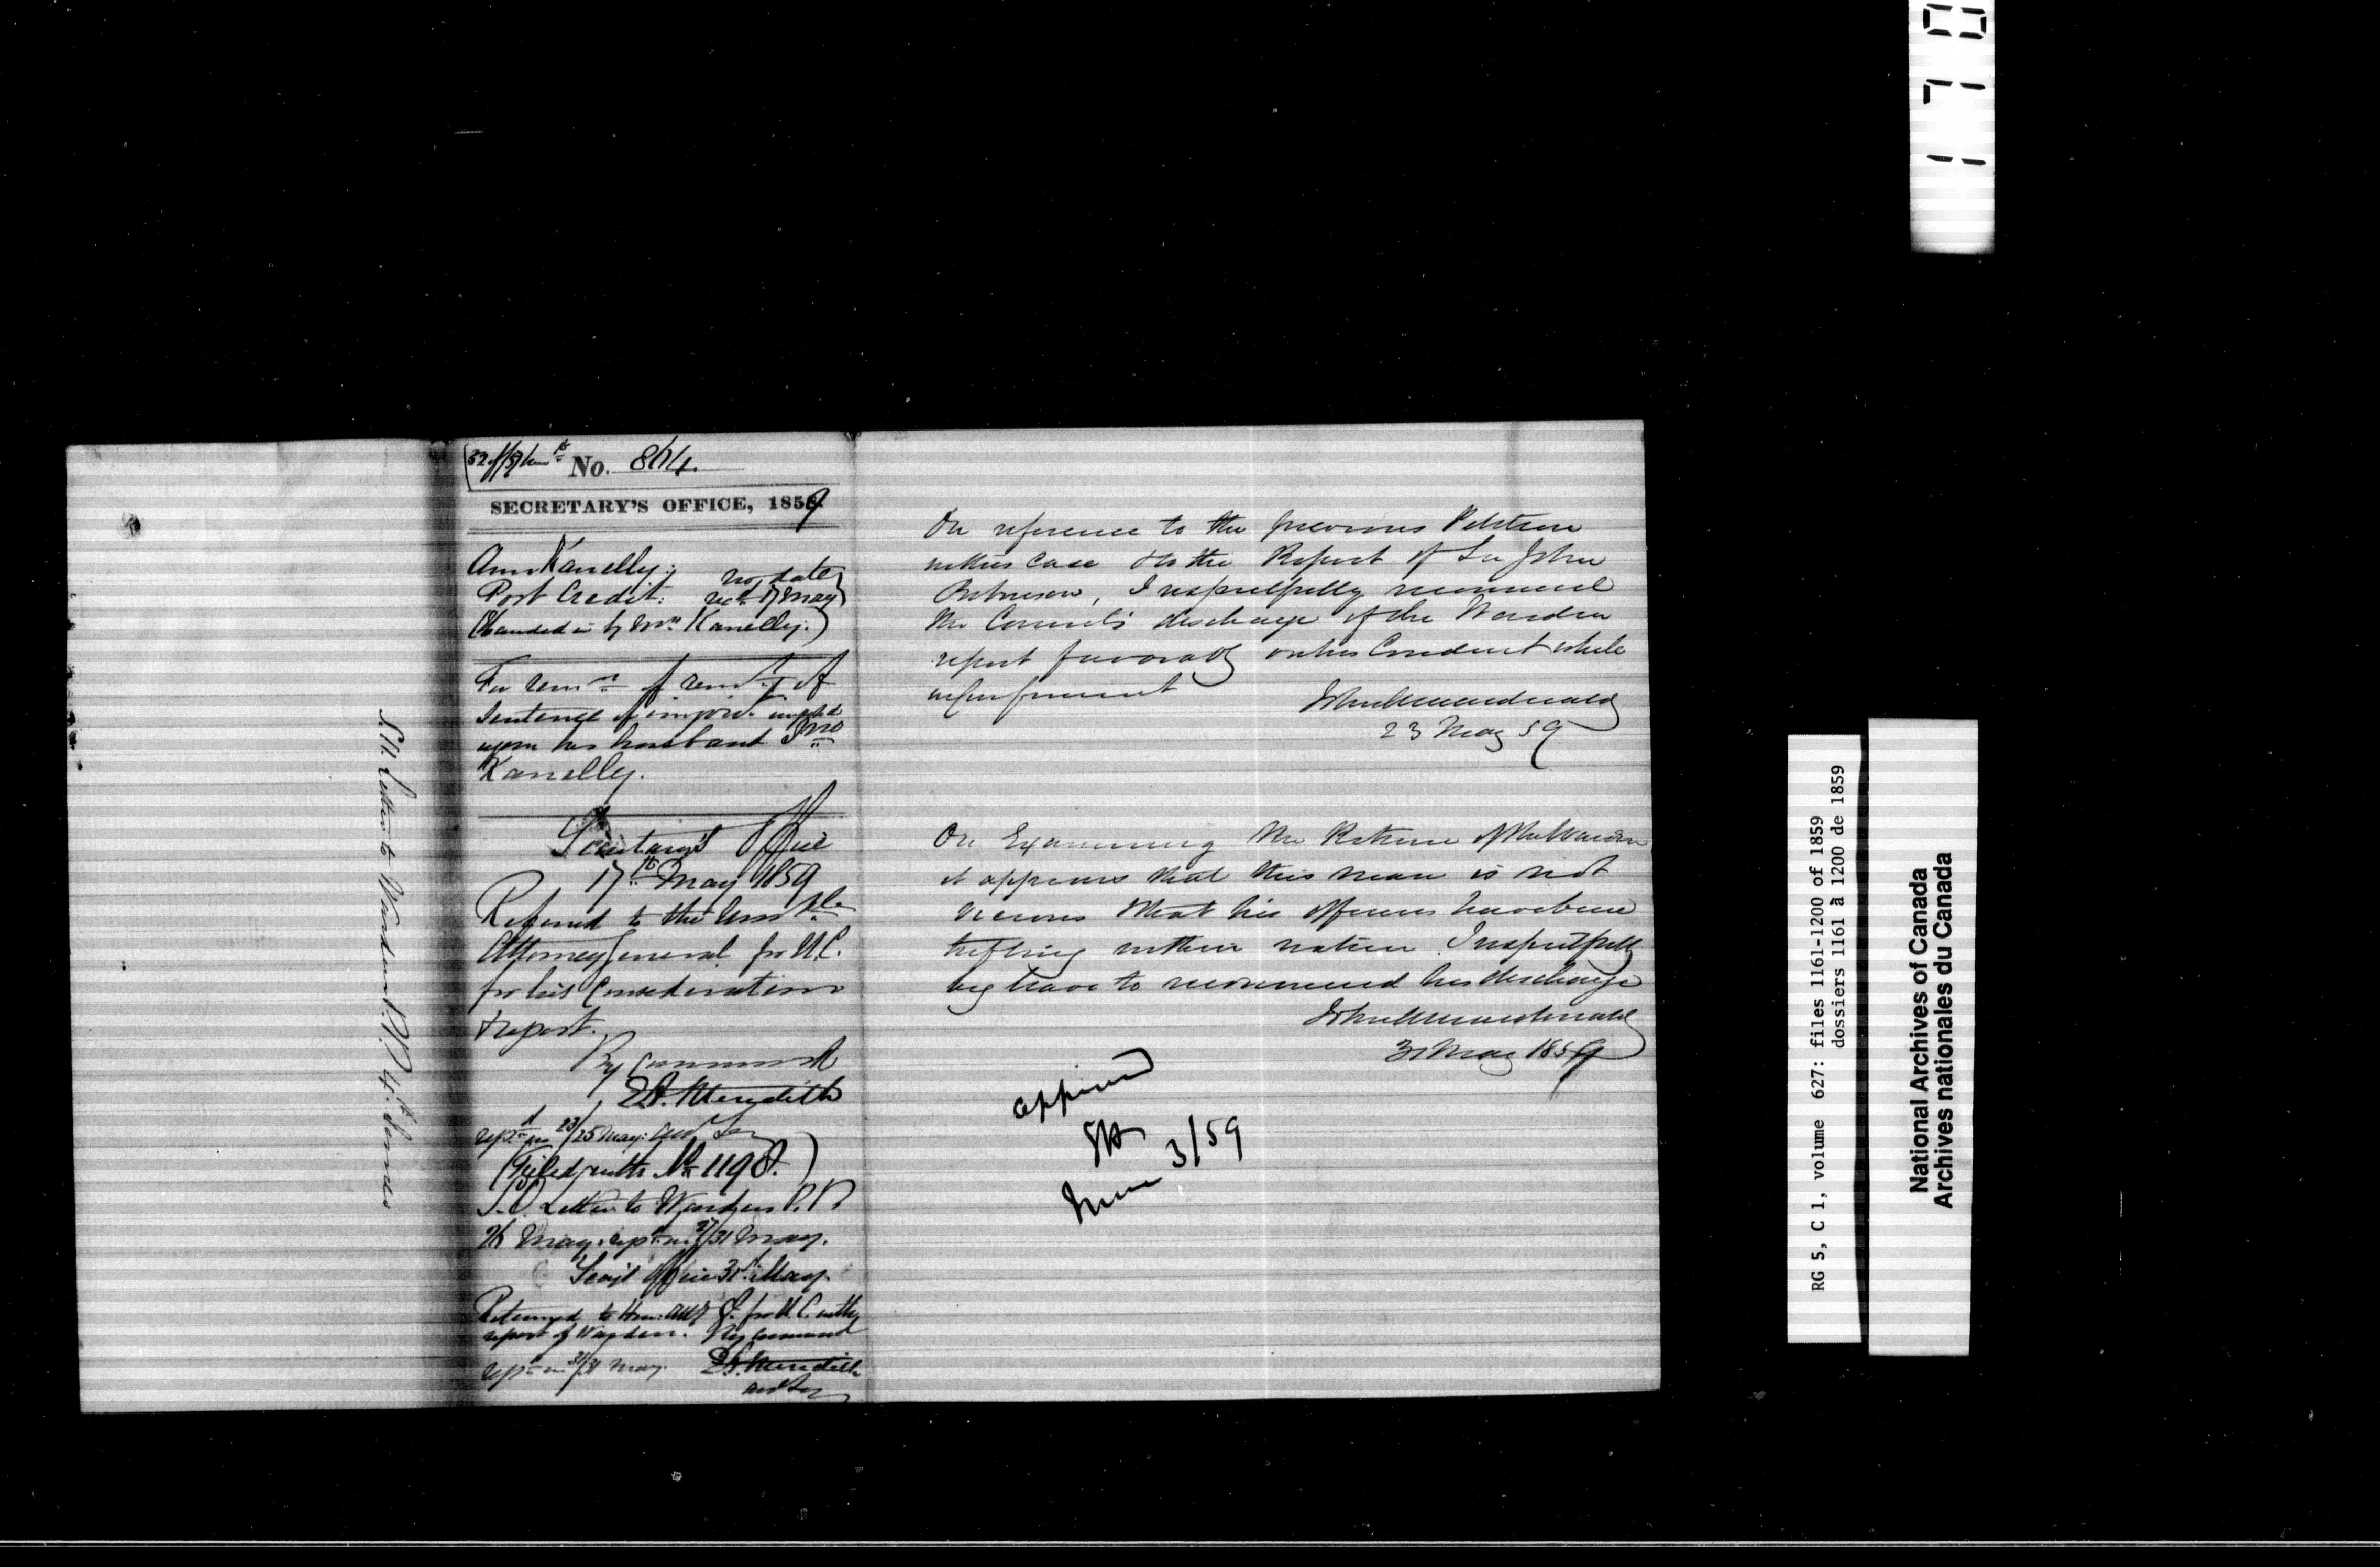 No. 864.
SECRETARY'S OFFICE, 1859
Ann Kanelly:
Port Credit. no date
recd. 17 May
(handed in by Mrs. Kanelly.)
For remn. of
Sentence of imprt. imposed
upon her husband Jno
Kanelly.
Secretary's Office
17th May 1859
Referred to the Honble
Attorney General for U.C.
for his Consideration
& report.
By Command
E.A. Meredith
repd. on 23/25 May:
(Filed with No. 1198.)
S.O. Letter to Warden P.P.
26 May. repd. on 27/31 May.
Secy's Office 31st May.
Returned to Hon: Atty G. for U.C. with
report of Warden. By Command
repd. on 31/31 May. E.A. Meredith
Asst Secy
S.O. Letter to Warden P.P. 4th June
On reference to the previous Petition
in this case & to the Report of Sir John
Robinson, I respectfully recommend
the Convict's discharge if the Warden
report favorably on his Conduct while
in confinement
John A Macdonald
23 May 59
On Examining the Return of the Warden
it appears that this man is not
vicious & that his offences have been
trifling in their nature. I respectfully
beg leave to recommend his discharge
John A Macdonald
31 May 1859
approved
June 3/59
1170
RG 5, C 1, volume 627: files 1161-1200 of 1859
dossiers 1161 à 1200 de 1859
National Archives of Canada
Archives nationales du Canada